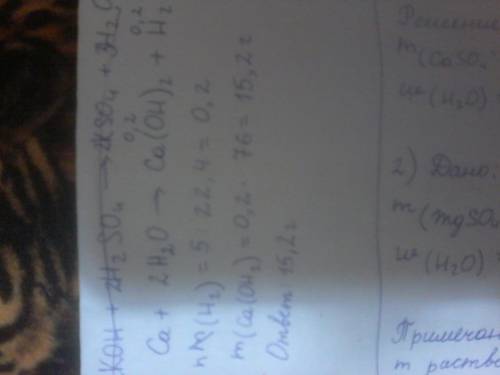 KOH + 2H₂SO₄ → 2KSO₄ + 3H₂O
0,2 0,2
Ca + 2H₂O → Ca(OH)₂ + H₂
n(H₂) = 5 : 22,4 = 0,2
m(Ca(OH₂) = 0,2 · 76 = 15,2г
Ответ 15,2г
Решение
m(CaSO₄
w(H₂O) =
2) Дано:
m(MgSO₄
w(H₂O) =
Примечан
m раство